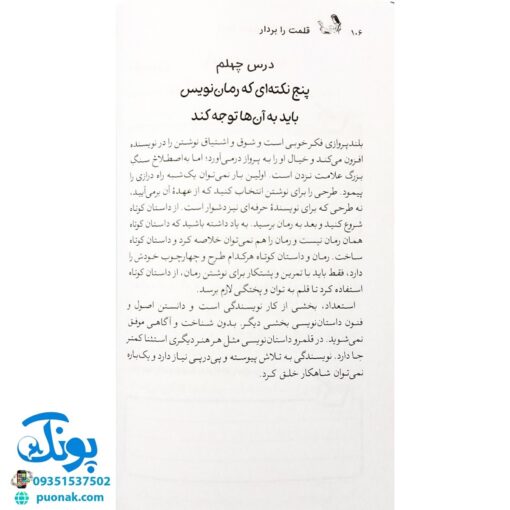 ۱۰۶ قلمت را بردار
درس چهلم
پنج نکته‌ای که رمان‌نویس
باید به آن‌ها توجه کند
بلندپروازی فکر خوبی است و شوق و اشتیاق نوشتن را در نویسنده
افزون می‌کند و خیال او را به پرواز درمی‌آورد؛ اما به‌اصطلاح سنگِ
بزرگ علامت نزدن است. اولین بار نمی‌توان یک‌شبه راه درازی را
پیمود. طرحی را برای نوشتن انتخاب کنید که از عهدهٔ آن برمی‌آیید،
نه طرحی که برای نویسندهٔ حرفه‌ای نیز دشوار است. از داستان کوتاه
شروع کنید و بعد به رمان برسید. به یاد داشته باشید که داستان کوتاه
همان رمان نیست و رمان را هم نمی‌توان خلاصه کرد و داستان کوتاه
ساخت. رمان و داستان کوتاه هرکدام طرح و چهارچوب خودش را
دارد، فقط باید با تمرین و پشتکار برای نوشتن رمان، از داستان کوتاه
استفاده کرد تا قلم به توان و پختگی لازم برسد.
استعداد، بخشی از کار نویسندگی است و دانستن اصول و
فنون داستان‌نویسی بخشی دیگر. بدون شناخت و آگاهی موفق
نمی‌شوید. در قلمرو داستان‌نویسی مثل هر هنر دیگری استثنا کمتر
جا دارد. نویسندگی به تلاش پیوسته و پی‌درپی نیاز دارد و یک‌باره
نمی‌توان شاهکار خلق کرد.
پونک
09351537502
puonak.com